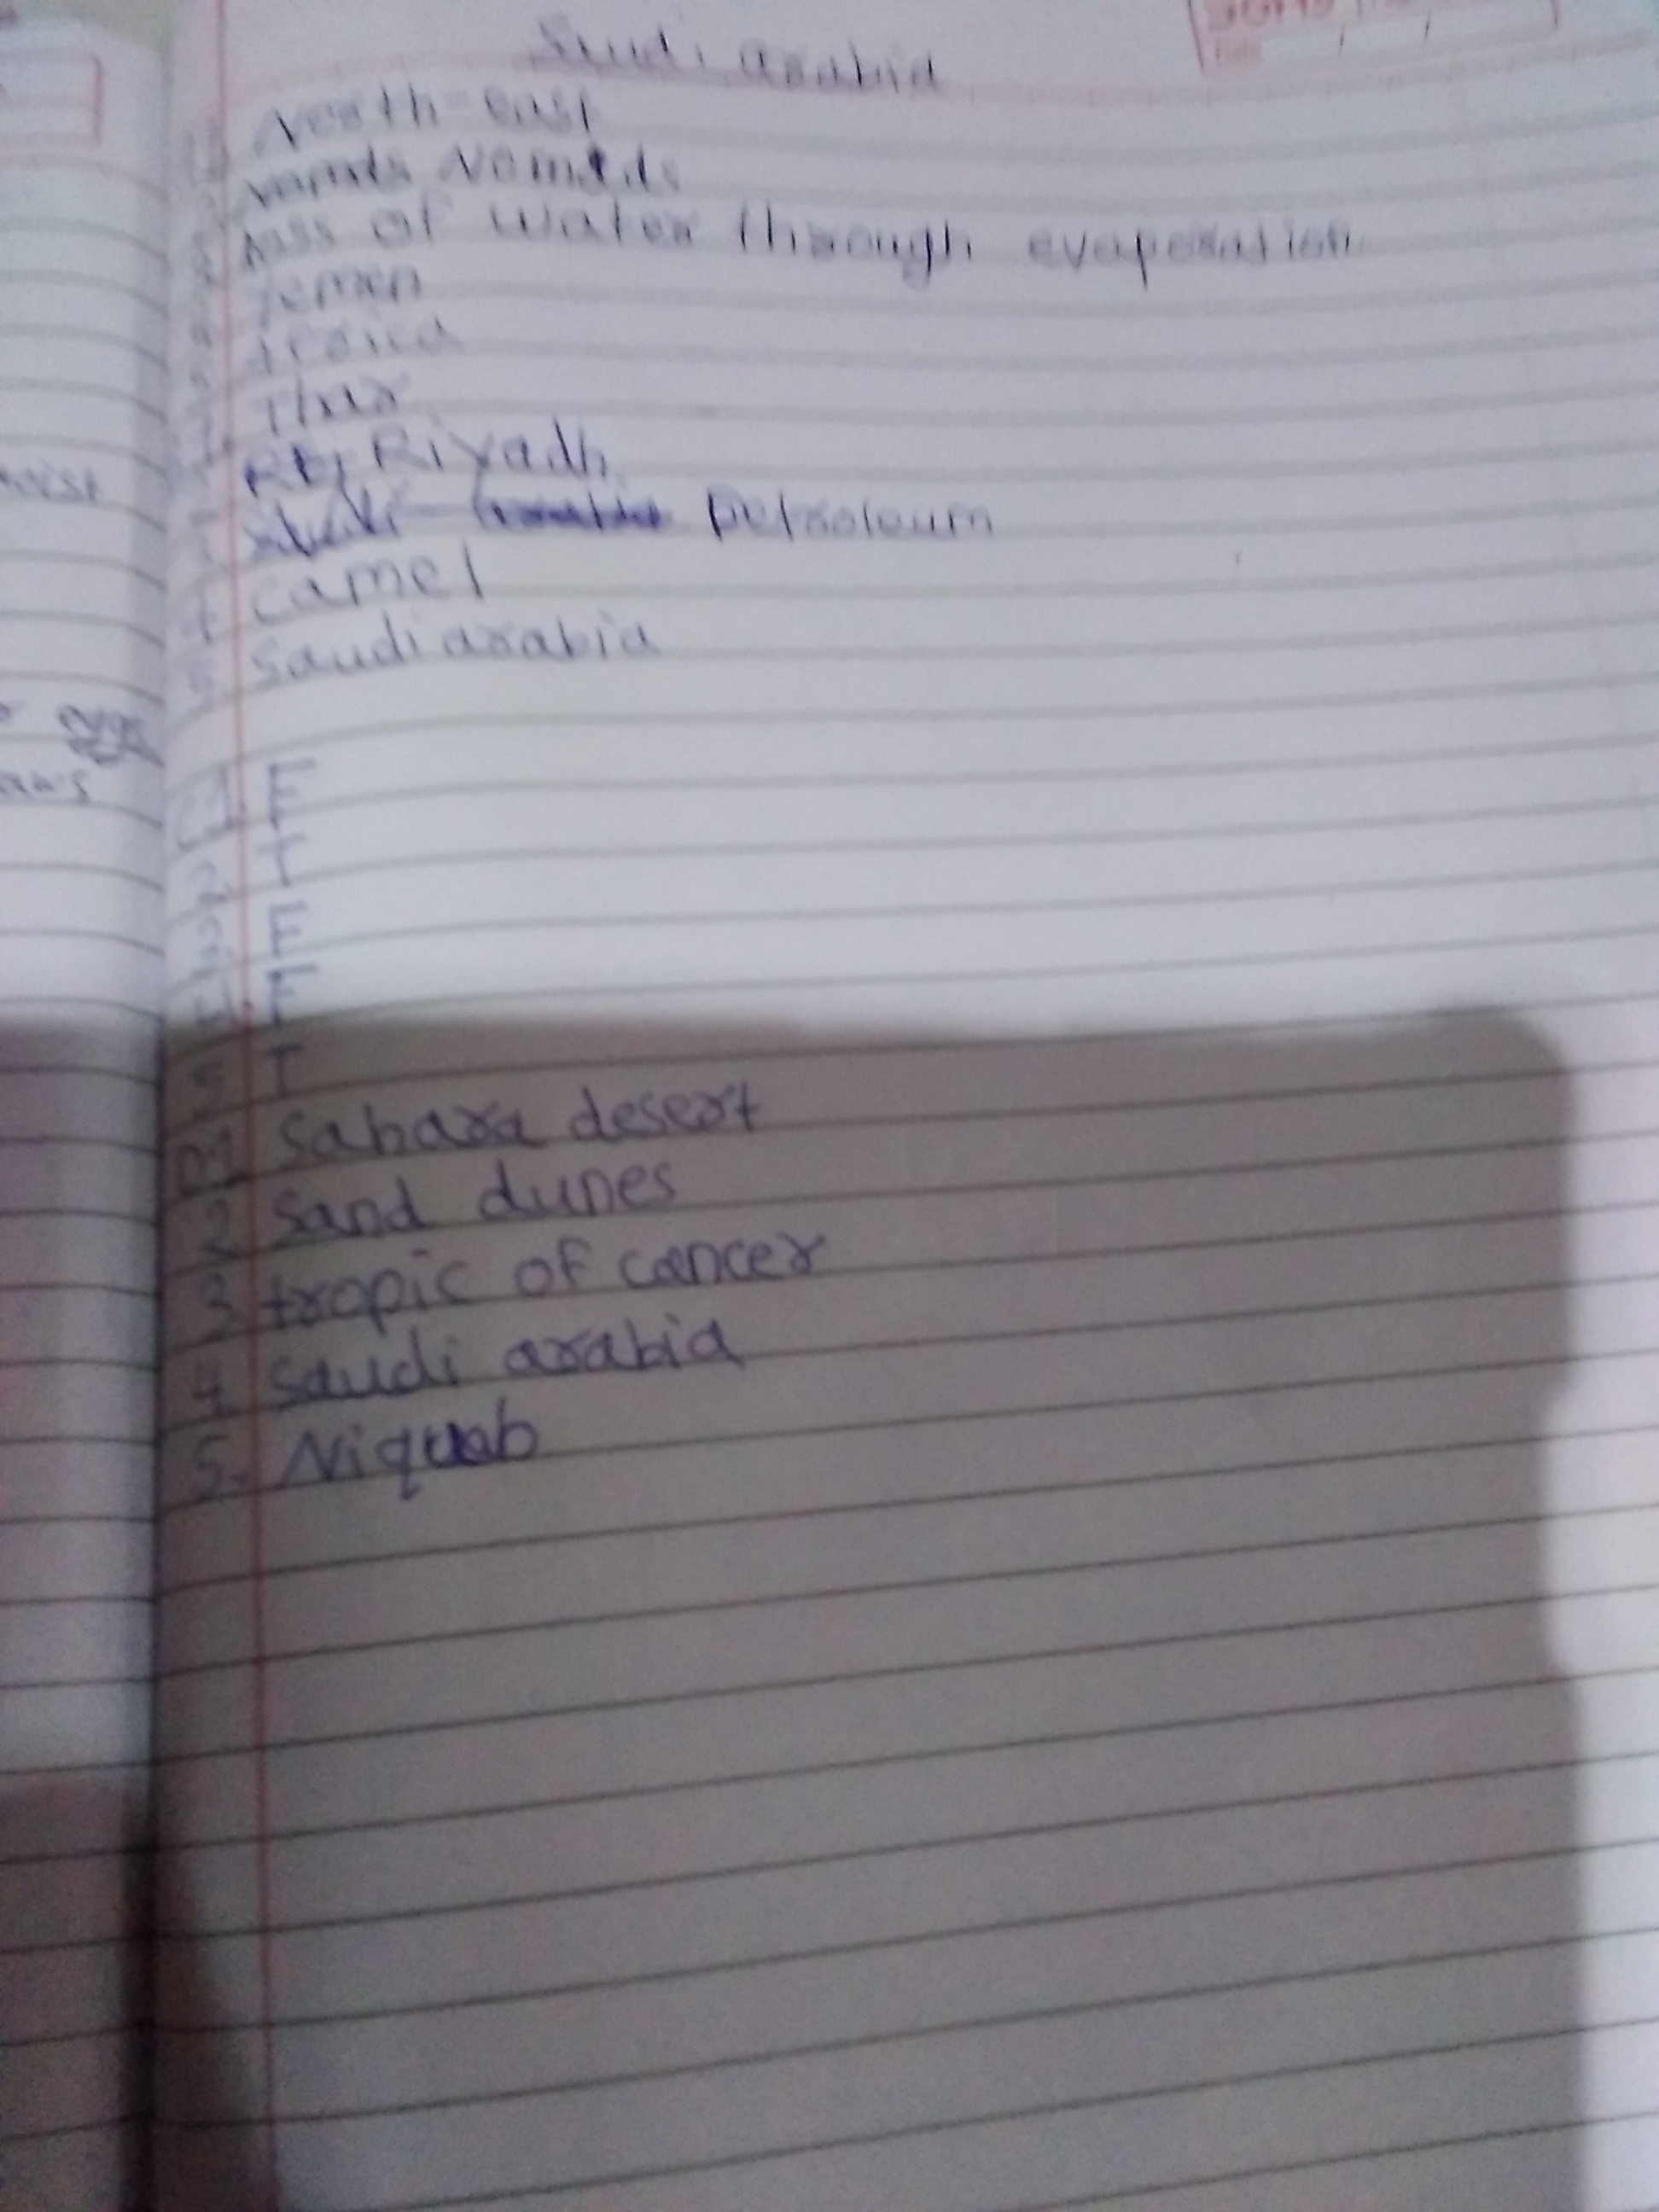 Saudi arabia
Date / /
North-east
Nomads
loss of water through evaporation
Yemen
Africa
Thar
Riyadh
petroleum
camel
Saudi arabia
F
T
F
F
5 T
Sahara desert
2 Sand dunes
3 tropic of cancer
4 Saudi arabia
5. Niquab